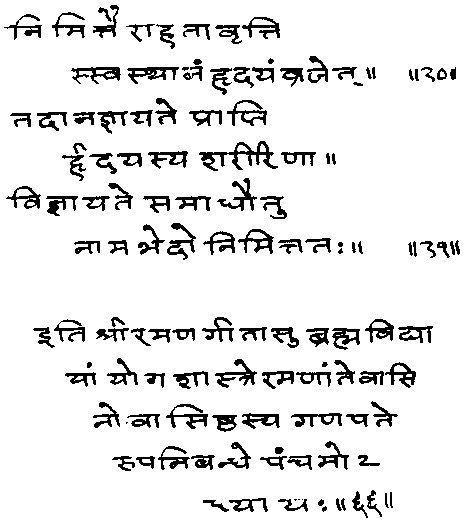 निमित्तैराहतावृत्ति
स्स्वस्थानंहृदयंव्रजेत्॥ ॥३०॥
तदानज्ञायते प्राप्ति
र्हृदयस्य शरीरिणा॥
विज्ञायते समाधौतु
नामभेदोनिमित्ततः॥ ॥३१॥
इति श्रीरमणगीतासु ब्रह्मविद्या
यां योगशास्त्रेरमणांतेवासि
नोवासिष्ठस्य गणपते
रुपनिबन्धे पंचमोऽ
ध्यायः॥६६॥